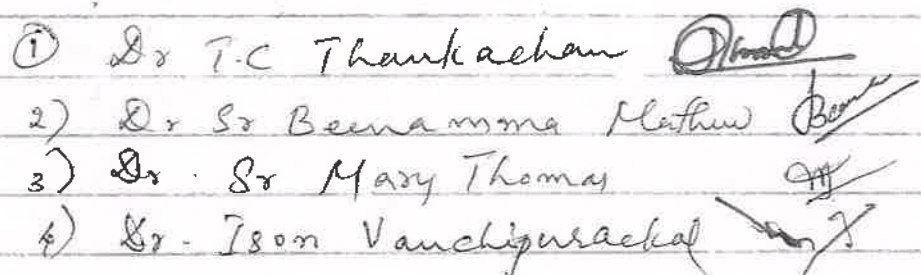 ① Dr T.C Thankachan
2) Dr Sr Beenamma Mathew Beena
3) Dr. Sr Mary Thomas
4) Dr. Ison Vanchipurackal